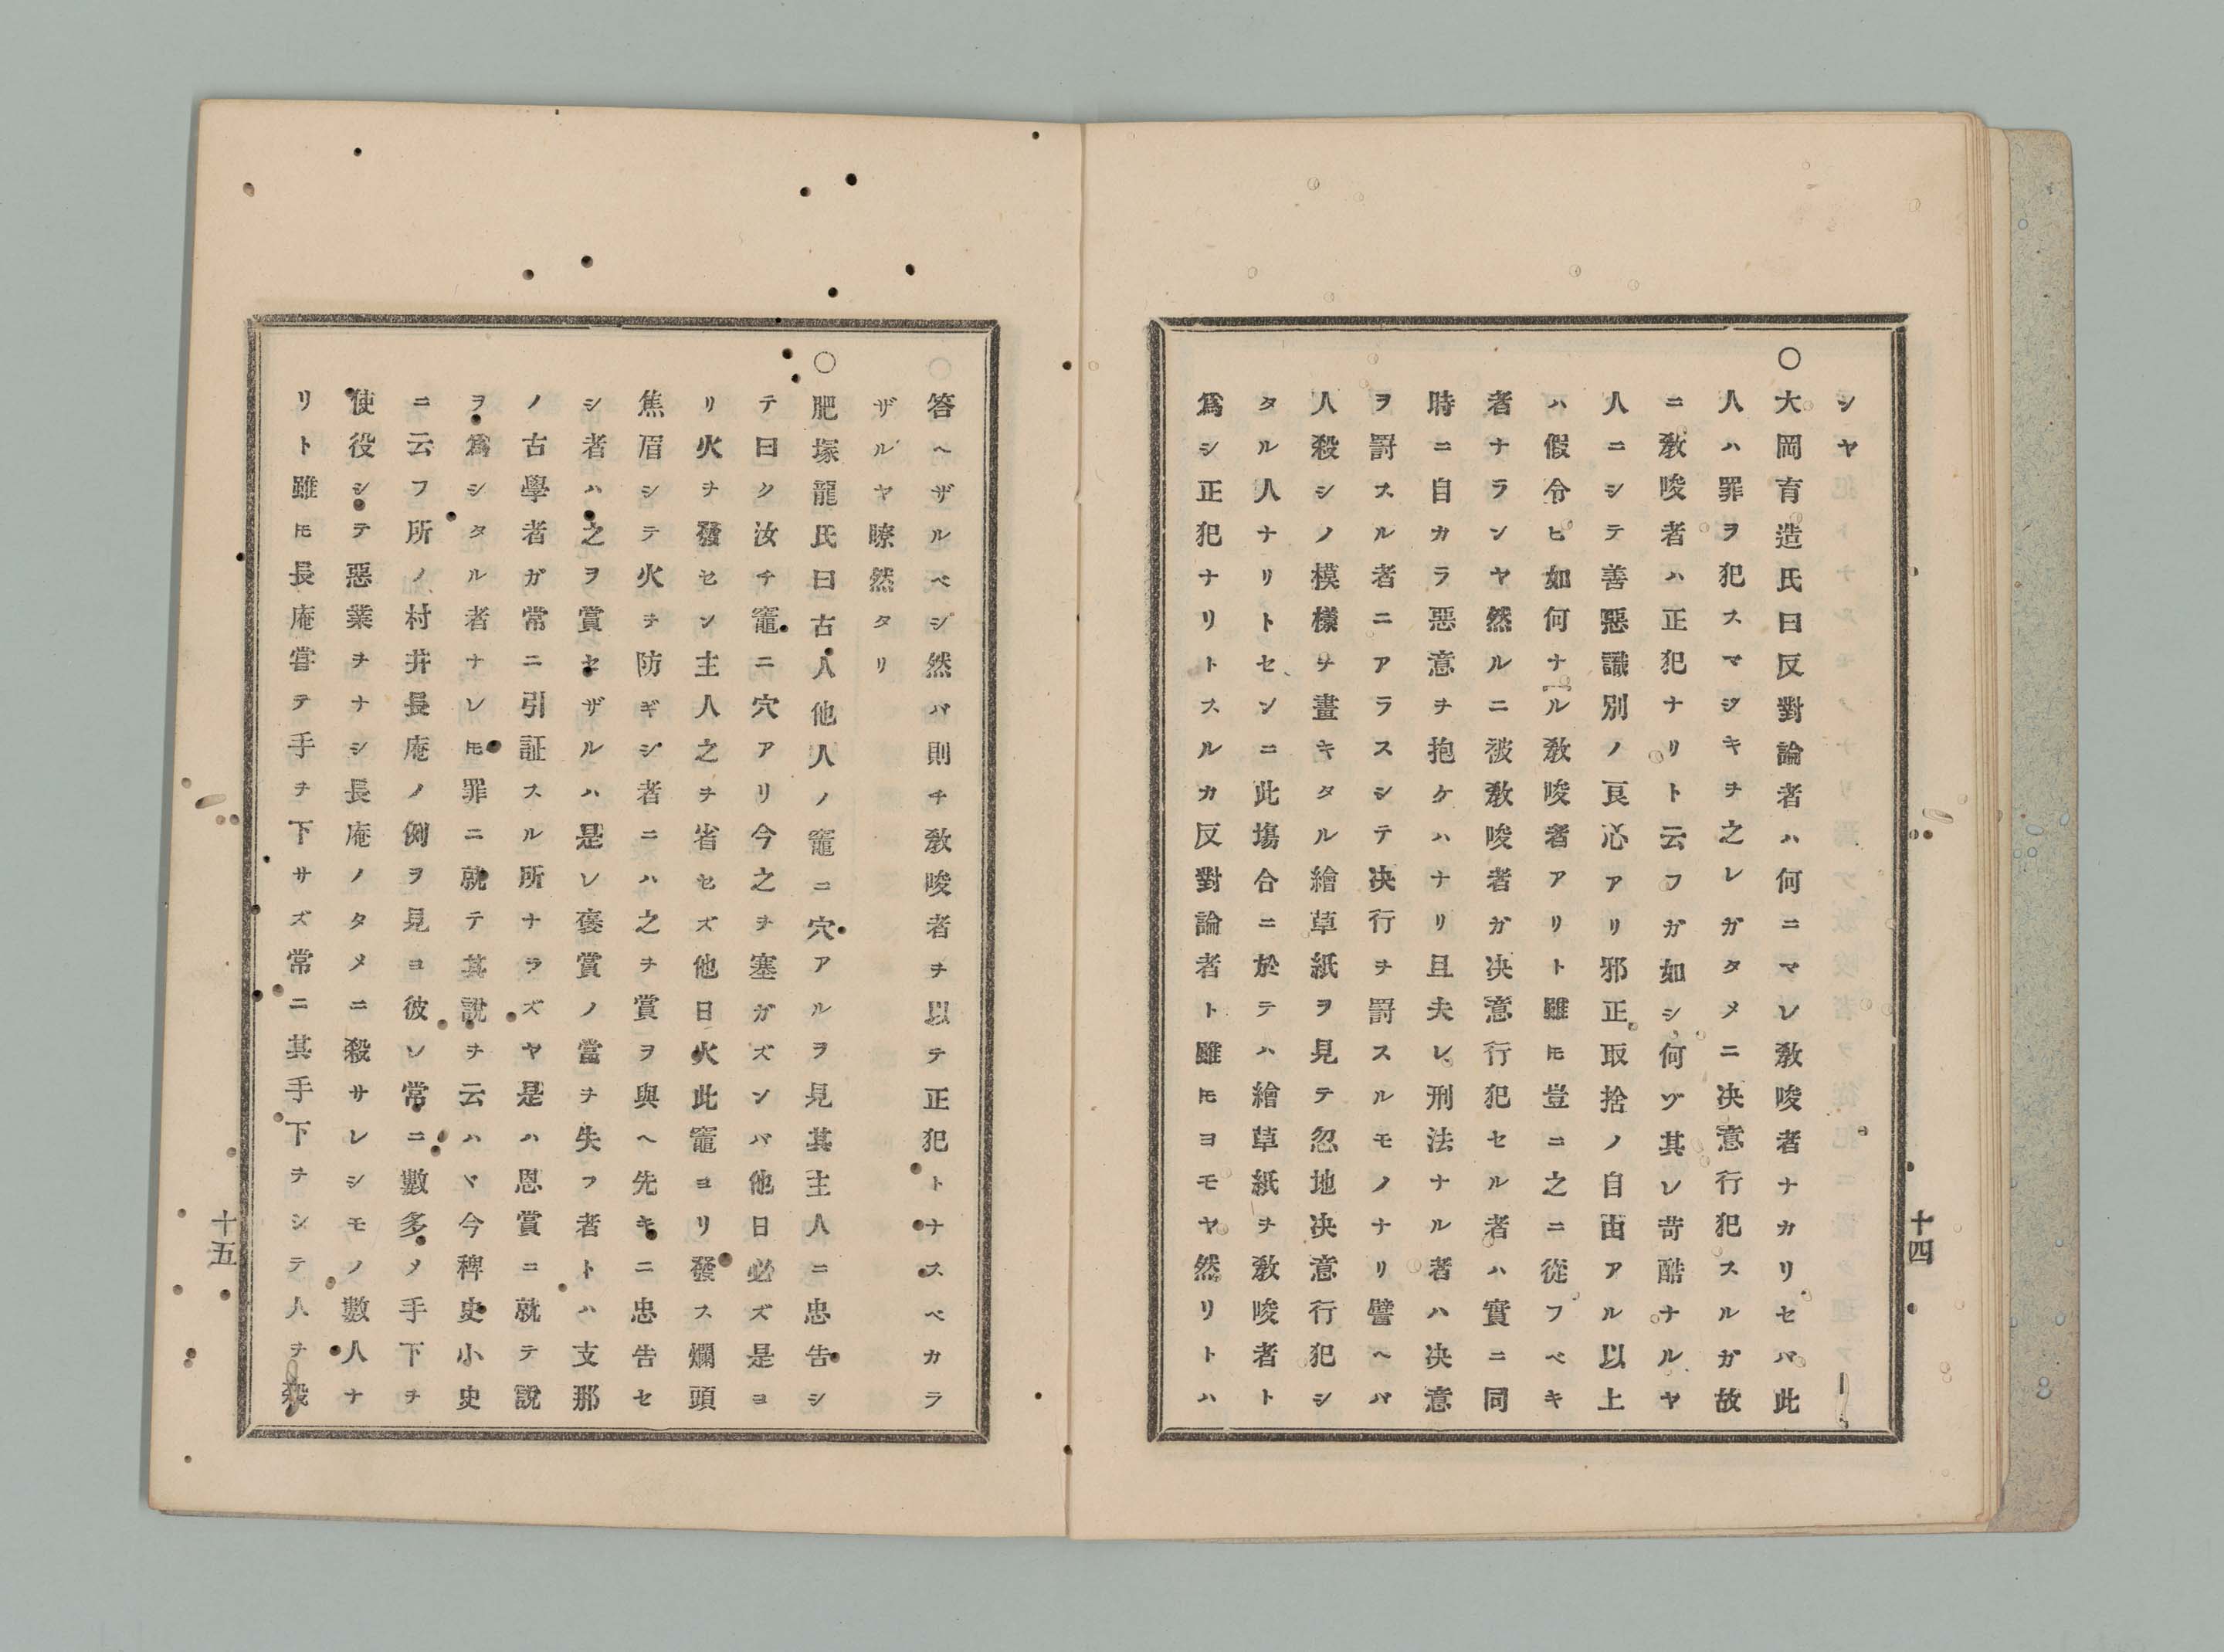 シヤ
○大岡育造氏曰反對論者ハ何ニマレ敎唆者ナカリセバ此
人ハ罪ヲ犯スマジキヲ之レガタメニ决意行犯スルガ故
ニ敎唆者ハ正犯ナリト云フガ如シ何ゾ其レ苛酷ナルヤ
人ニシテ善惡識別ノ良心アリ邪正取捨ノ自由アル以上
ハ假令ヒ如何ナル敎唆者アリト雖𪜈豈ニ之ニ從フベキ
者ナランヤ然ルニ被敎唆者ガ决意行犯セル者ハ實ニ同
時ニ自カラ惡意ヲ抱ケハナリ且夫レ刑法ナル者ハ决意
ヲ罰スル者ニアラスシテ决行ヲ罰スルモノナリ譬ヘバ
人殺シノ模樣ヲ畫キタル繪草紙ヲ見テ忽地决意行犯シ
タル人ナリトセンニ此塲合ニ於テハ繪草紙ヲ敎唆者ト
爲シ正犯ナリトスルカ反對論者ト雖𪜈ヨモヤ然リトハ
十四
答ヘザルベシ然バ則チ敎唆者ヲ以テ正犯トナスベカラ
ザルヤ瞭然タリ
○肥塚龍氏曰古人他人ノ竈ニ穴アルヲ見其主人ニ忠告シ
テ曰ク汝チ竈ニ穴アリ今之ヲ塞ガズンバ他日必ズ是ヨ
リ火ヲ發セン主人之ヲ省セズ他日火此竈ヨリ發ス爛頭
焦眉シテ火ヲ防ギシ者ニハ之ヲ賞ヲ與ヘ先キニ忠告セ
シ者ハ之ヲ賞セザルハ是レ褒賞ノ當ヲ失フ者トハ支那
ノ古學者ガ常ニ引証スル所ナラズヤ是ハ恩賞ニ就テ說
ヲ爲シタル者ナレ𪜈罪ニ就テ其說ヲ云ハヾ今稗史小史
ニ云フ所ノ村井長庵ノ側ヲ見ヨ彼レ常ニ數多ノ手下ヲ
使役シテ惡業ヲナシ長庵ノタメニ殺サレシモノ數人ナ
リト雖𪜈長庵嘗テ手ヲ下サズ常ニ其手下ヲシテ人ヲ殺
十五